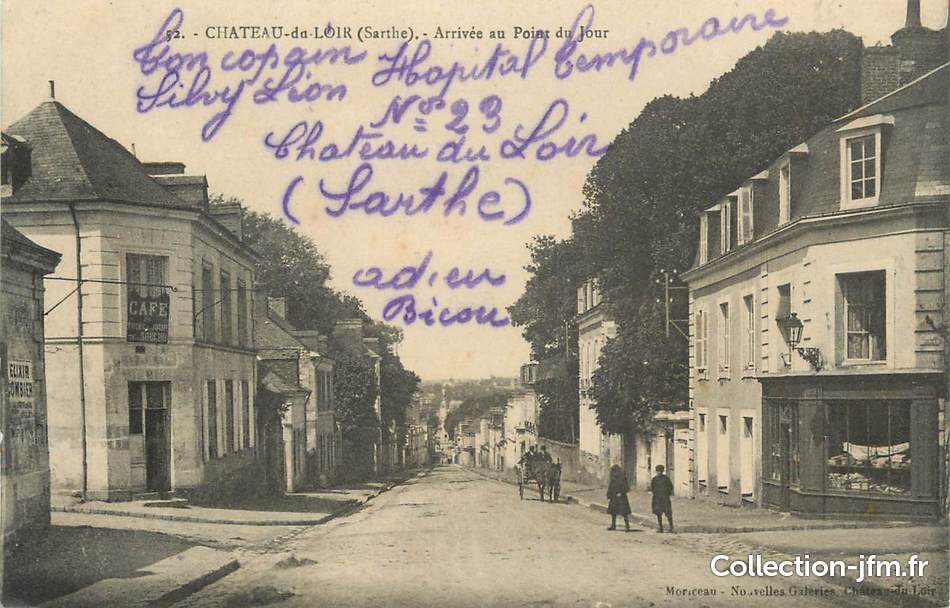 52. - CHATEAU-du-LOIR (Sarthe). - Arrivée au Point du Jour
ton copain Hopital temporaire
Silvy Léon
Nº= 23
Chateau du Loir
(Sarthe)
adieu
Bicou
CAFÉ
ELIXIR
COMBIER
Collection-jfm.fr
Moriceau - Nouvelles Galeries, Château-du-Loir